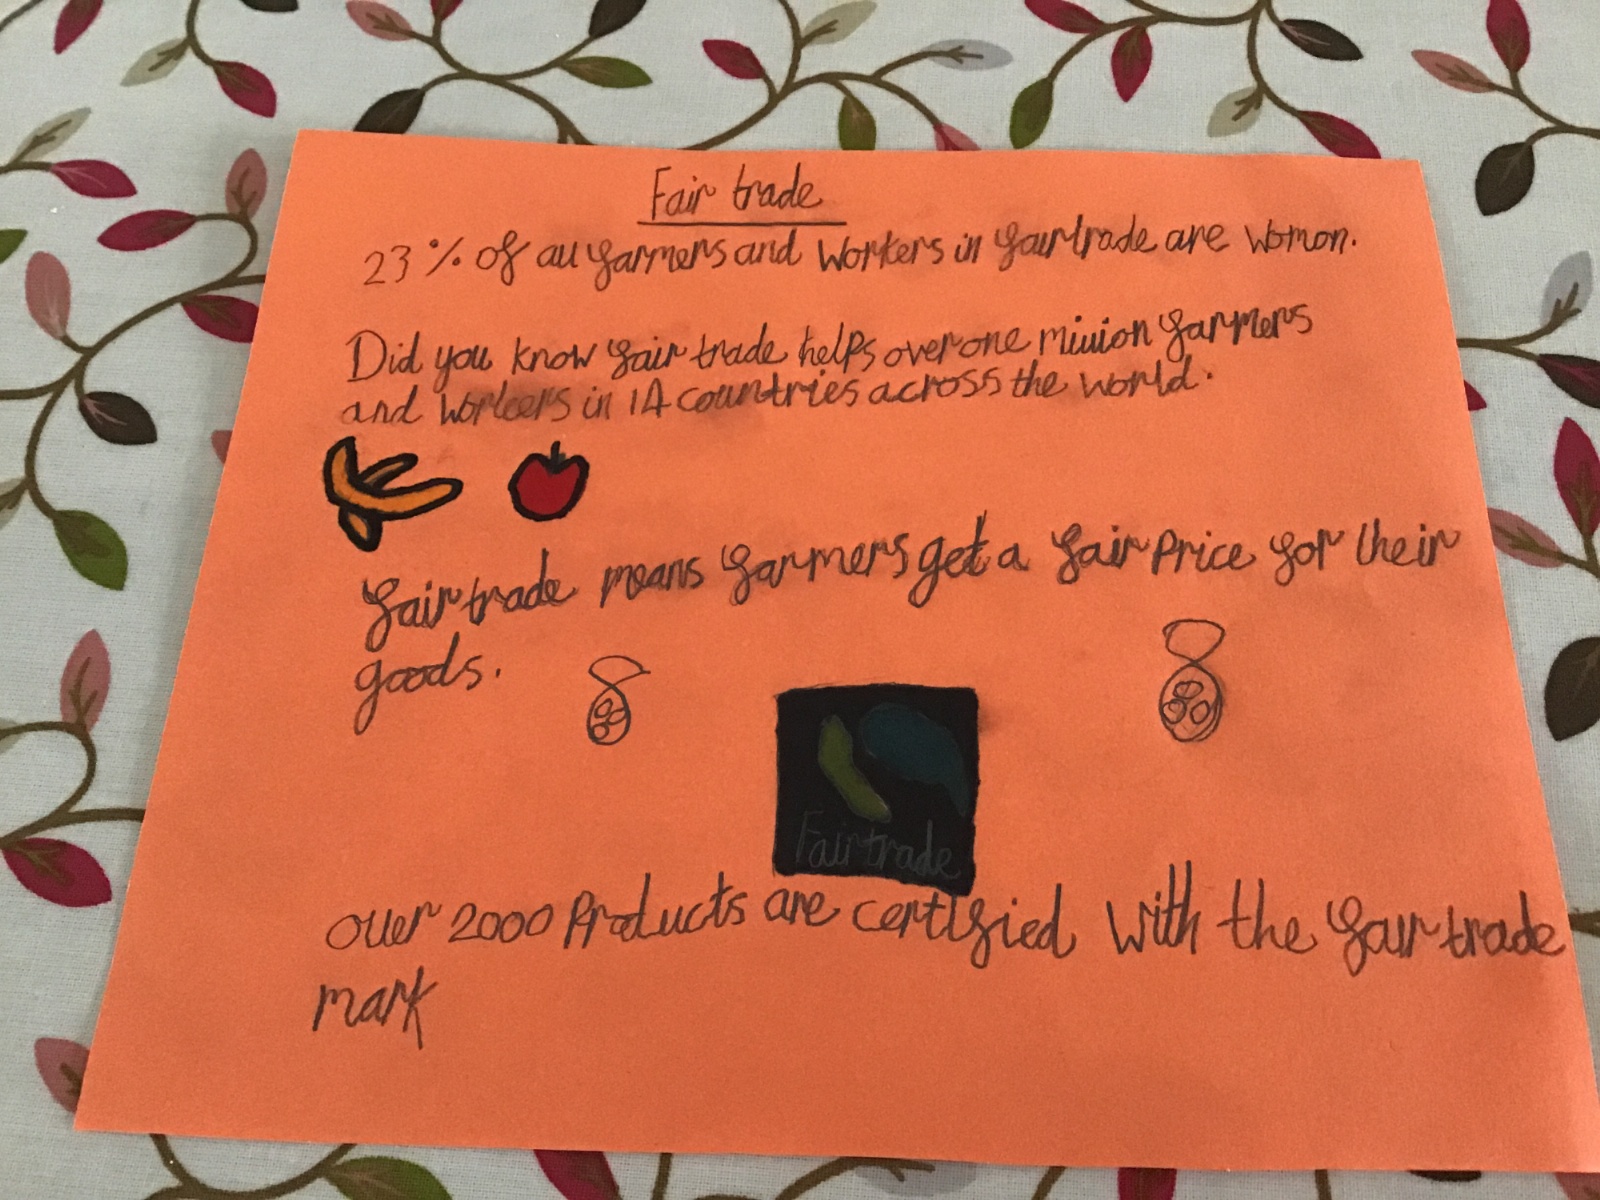 Fair trade
23% of all farmers and workers in fairtrade are women.
Did you know fair trade helps over one million farmers
and workers in 14 countries across the world.
fair trade means farmers get a fair price for their
goods.
Fairtrade
over 2000 Products are certified with the fair trade
mark